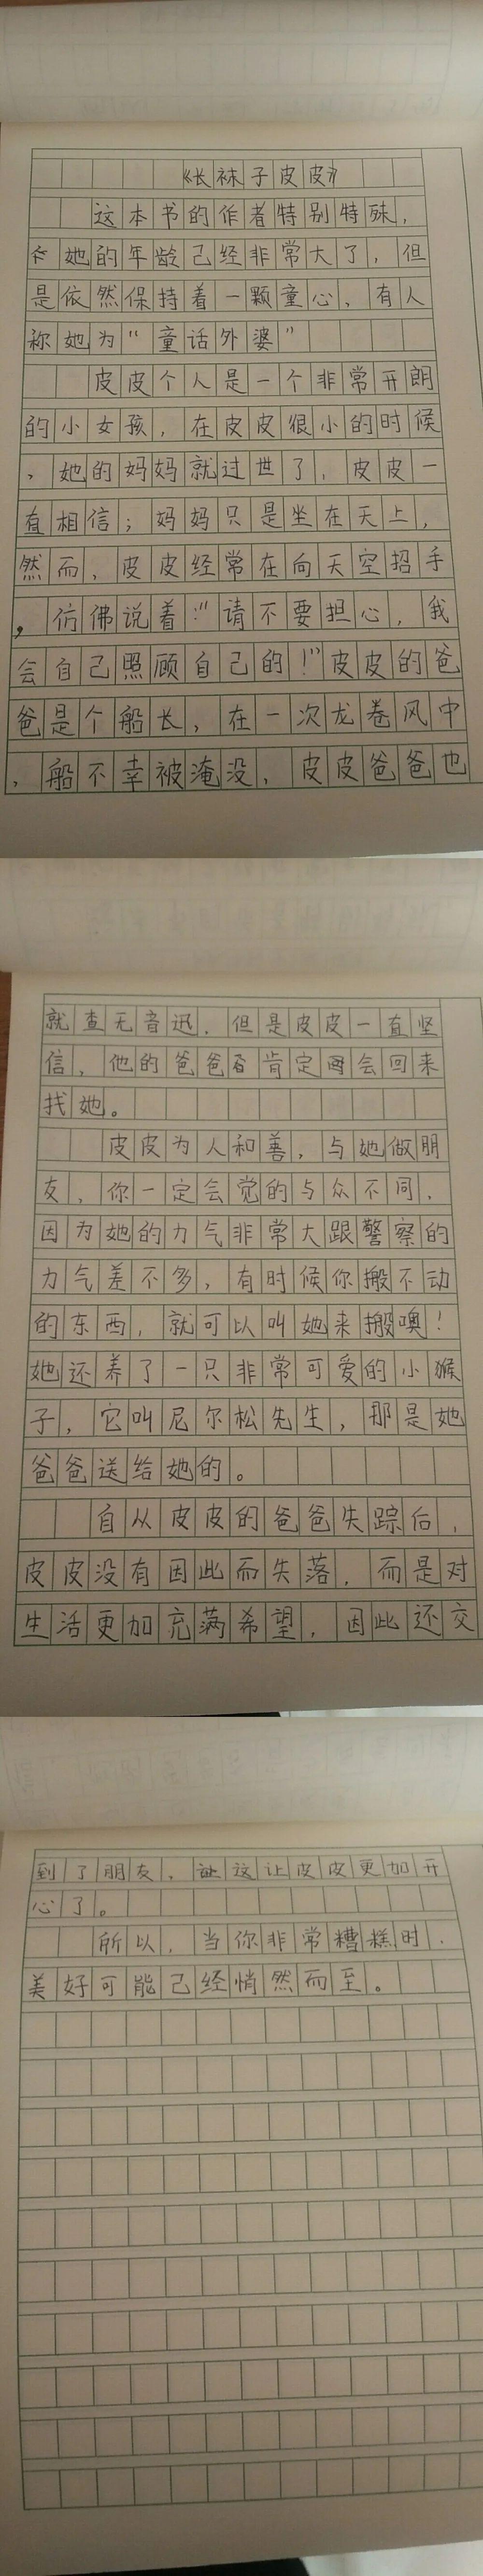 《长袜子皮皮》
这本书的作者特别特殊，
她的年龄己经非常大了，但
是依然保持着一颗童心，有人
称她为“童话外婆”
皮皮个人是一个非常开朗
的小女孩，在皮皮很小的时候
，她的妈妈就过世了，皮皮一
直相信；妈妈只是坐在天上，
然而，皮皮经常在向天空招手
，仿佛说着：“请不要担心，我
会自己照顾自己的！”皮皮的爸
爸是个船长，在一次龙卷风中
，船不幸被淹没，皮皮爸爸也
就查无音迅，但是皮皮一直坚
信，他的爸爸肯定会回来
找她。
皮皮为人和善，与她做朋
友，你一定会觉的与众不同，
因为她的力气非常大跟警察的
力气差不多，有时候你搬不动
的东西，就可以叫她来搬噢！
她还养了一只非常可爱的小猴
子，它叫尼尔松先生，那是她
爸爸送给她的。
自从皮皮的爸爸失踪后，
皮皮没有因此而失落，而是对
生活更加充满希望，因此还交
到了朋友，这让皮皮更加开
心了。
所以，当你非常糟糕时，
美好可能己经悄然而至。